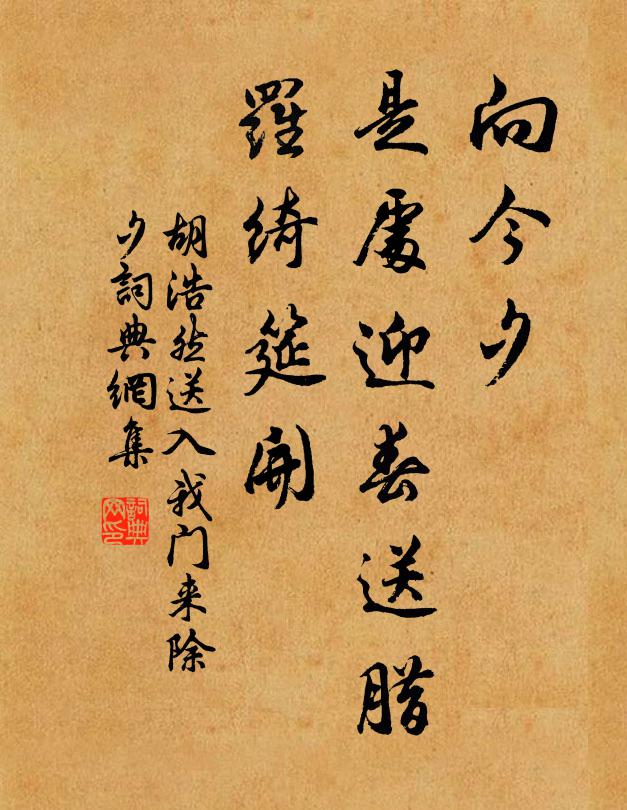 向今夕
是處迎春送腊
羅綺筵開
胡浩然送入我门来除
夕詞典網集
詞典網印